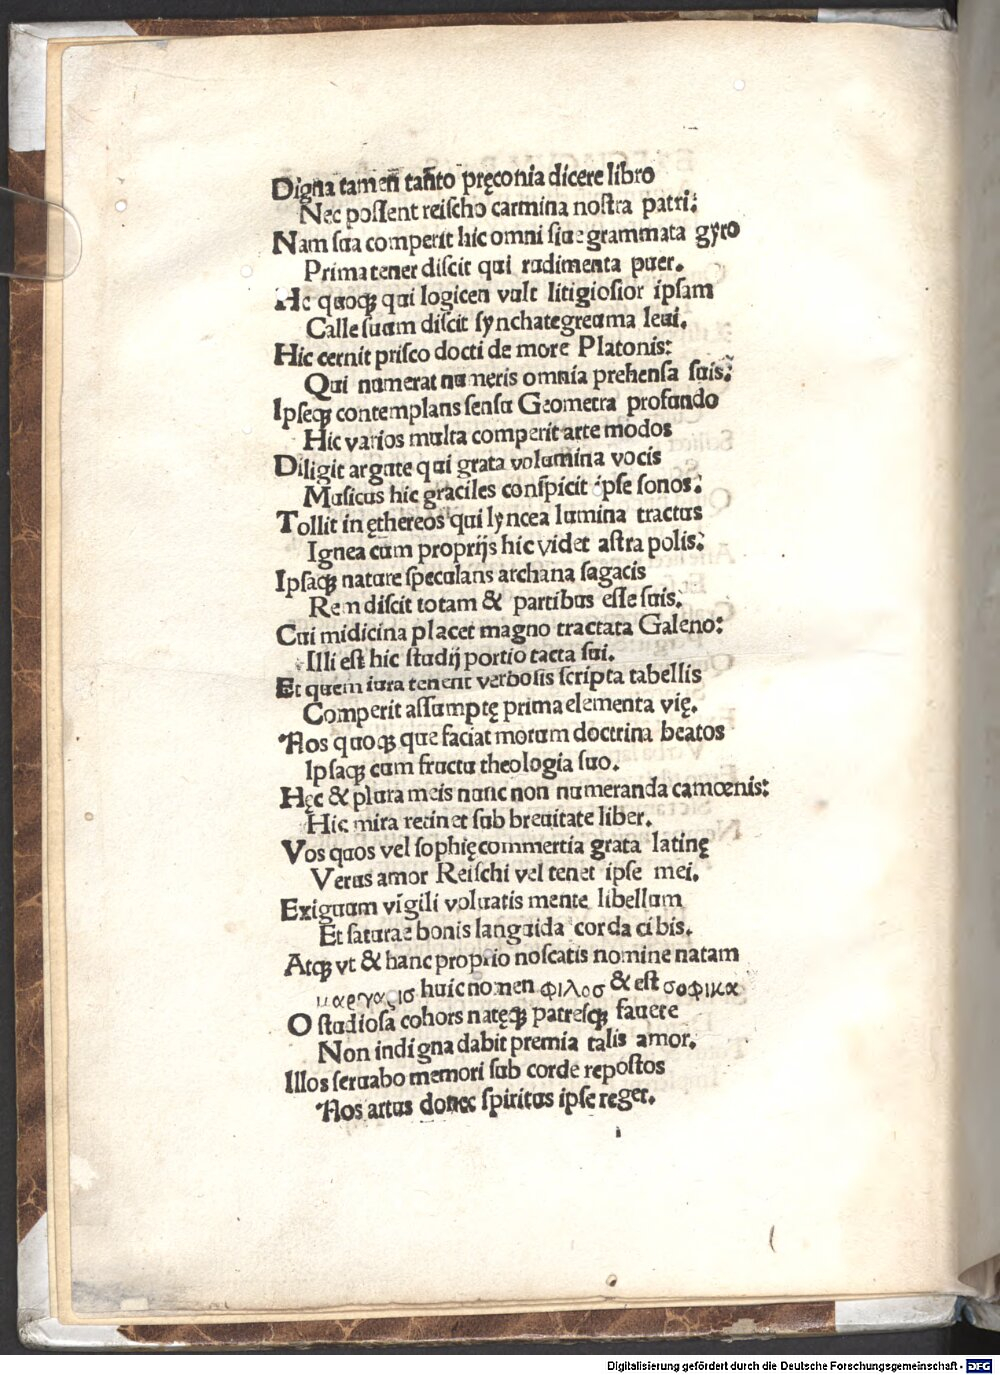 Digna tamen tanto pręconia dicere libro
Nec possent reischo carmina nostra patri:
Nam sua comperit hic omni siue grammata gyro
Prima tener discit qui rudimenta puer.
Hc quoqȝ qui logicen vult litigiosior ipsam
Calle suum discit synchategreuma leui.
Hic cernit prisco docti de more Platonis:
Qui numerat numeris omnia prehensa suis:
Ipseqȝ contemplans sensu Geometra profundo
Hic varios multa comperit arte modos
Diligit argute qui grata volumina vocis
Musicus hic graciles conspicit ipse sonos:
Tollit in ęthereos qui lyncea lumina tractus
Ignea cum proprijs hic videt astra polis:
Ipsaqȝ nature speculans archana sagacis
Rem discit totam & partibus esse suis:
Cui midicina placet magno tractata Galeno:
Illi est hic studij portio tacta sui.
Et quem iura tenent verbosis scripta tabellis
Comperit assumptę prima elementa vię.
Nos quoqȝ que faciat morum doctrina beatos
Ipsaqȝ cum fructu theologia suo.
Hęc & plura meis nunc non numeranda camœnis:
Hic mira retinet sub breuitate liber.
Vos quos vel sophię commertia grata latinę
Verus amor Reischi vel tenet ipse mei.
Exiguum vigili voluatis mente libellum
Et saturae bonis languida corda cibis.
Atqȝ vt & hanc proprio noscatis nomine natam
μαργαρισ huic nomen φιλοσ & est σοφικα
O studiosa cohors natęqȝ patresqȝ fauete
Non indigna dabit premia talis amor.
Illos seruabo memori sub corde repostos
Nos artus donec spiritus ipse reget.
Digitalisierung gefördert durch die Deutsche Forschungsgemeinschaft - DFG